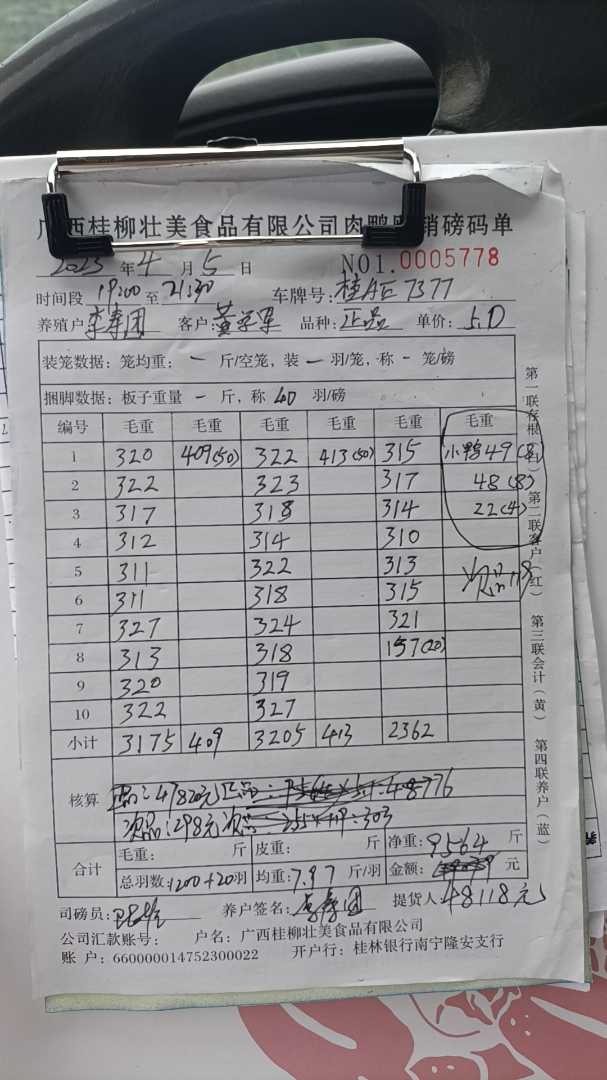 广西桂柳壮美食品有限公司肉鸭 销磅码单
2023 年 4 月 5 日 NO1.0005778
时间段 19:00 至 21:30 车牌号: 桂AE7377
养殖户 李寿团 客户: 品种: 正品 单价: 5.0
装笼数据: 笼均重: — 斤/空笼, 装 — 羽/笼, 称 - 笼/磅
捆脚数据: 板子重量 — 斤, 称 40 羽/磅
编号 毛重 毛重 毛重 毛重 毛重 毛重
1 320 409(50) 322 413(50) 315 小鸭49(8)
2 322 323 317 48(8)
3 317 318 314 22(4)
4 312 314 310
5 311 322 313 次品119
6 311 318 315
7 327 324 321
8 313 318 157(20)
9 320 319
10 322 327
小计 3175 409 3205 413 2362
核算 正品:47820元
次品:298元
合计 毛重: 斤 皮重: 斤 净重: 9564 斤
总羽数: 1200+20羽 均重: 7.97 斤/羽 金额: 元
司磅员: 养户签名: 李寿团 提货人 48118元
公司汇款账号: 户名: 广西桂柳壮美食品有限公司
账 户: 660000014752300022 开户行: 桂林银行南宁隆安支行
第一联存根 第二联客户(红) 第三联会计(黄) 第四联养户(蓝)